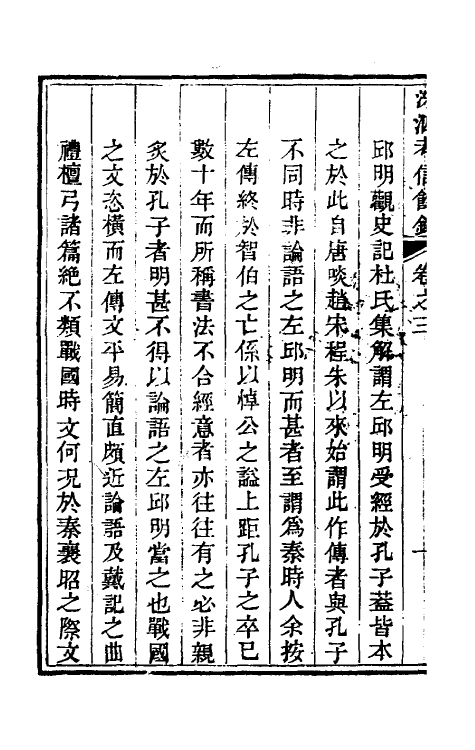 洙泗考信餘錄 卷之三
邱明觀史記杜氏集解謂左邱明受經於孔子蓋皆本
之於此自唐啖趙宋程朱以來始謂此作傳者與孔子
不同時非論語之左邱明而甚者至謂爲秦時人余按
左傳終於智伯之亡係以悼公之謚上距孔子之卒已
數十年而所稱書法不合經意者亦往往有之必非親
炙於孔子者明甚不得以論語之左邱明當之也戰國
之文恣橫而左傳文平易簡直頗近論語及戴記之曲
禮檀弓諸篇絕不類戰國時文何況於秦襄昭之際文